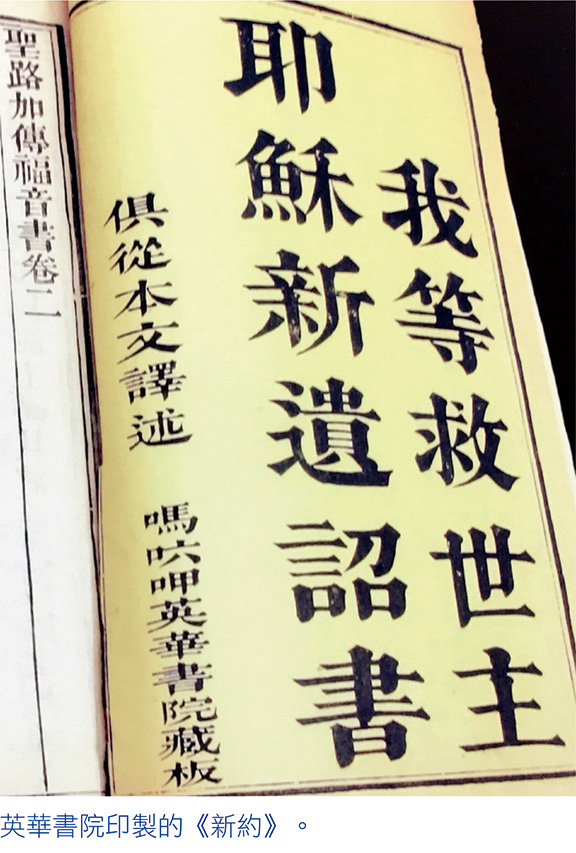 我等救世主
耶穌新遺詔書
俱從本文譯述
嗎㕸呷英華書院藏板
聖路加傳福音書卷二
英華書院印製的《新約》。